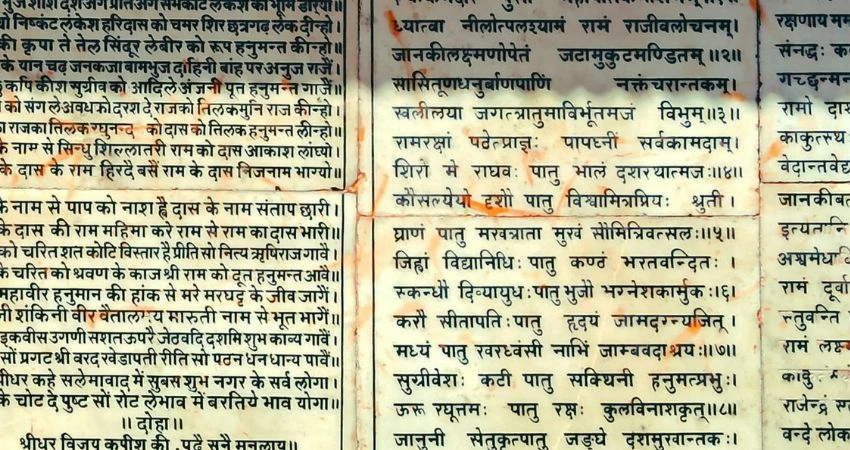 यो निष्कंट लंकेश हरिदास को चमर शिर छत्रगढ़ लंक दीन्हो।
की कृपा ते तेल सिंदूर लेबीर को रूप हनुमन्त कीन्हो॥
के यान चढ़ जनकजा बामभुज दाहिनी बांह पर अनुज राजें।
कपि कीश सुग्रीव को आदिले अंजनी पूत हनुमन्त गाजें॥
को संग ले अवधको दरश दे राजको तिलकमुनि राज कीन्हो।
राजका तिलक को दास को तिलक हनुमन्त लीन्हो॥
के नाम से सिन्धु शिल्लातरी राम को दास आकाश लांघ्यो।
के दास के राम हिरदै बसैं राम के दास निजनाम भाग्यो॥
के नाम से पाप को नाश ह्वै दास के नाम संताप छारी।
के दास की राम महिमा करे राम से राम का दास भारी॥
को चरित शत कोटि विस्तार है प्रीति सो नित्य ऋषिराज गावै।
के चरित को श्रवण के काज श्री राम को दूत हनुमन्त आवै॥
महावीर हनुमान की हांक से मरे मरघट्ट के जीव जागैं।
नी शंकिनी वीर वैताल मारुती नाम से भूत भागैं॥
इकवीस उगणी सशत ऊपरै जेठवदि दशमि शुभ काव्य गावैं।
सों प्रगट श्री वरद खेडापती रीति सो पठन धन धान्य पावैं॥
श्रीधर कहे सलेमावाद में सुबस शुभ नगर के सर्व लोगा।
के चोट दे पुष्ट सों रोट लेभाव में बरतिये भाव योगा॥
॥ दोहा॥
श्रीधर विजय कपीश की, पढ़ै सुनै मनलाय॥
ध्यात्वा नीलोत्पलश्यामं रामं राजीवलोचनम्।
जानकीलक्ष्मणोपेतं जटामुकुटमण्डितम्॥२॥
सासितूणधनुर्बाणपाणिं नक्तंचरान्तकम्।
स्वलीलया जगत्त्रातुमाविर्भूतमजं विभुम्॥३॥
रामरक्षां पठेत्प्राज्ञः पापघ्नीं सर्वकामदाम्।
शिरो मे राघवः पातु भालं दशरथात्मजः॥४॥
कौसल्येयो दृशौ पातु विश्वामित्रप्रियः श्रुती।
घ्राणं पातु मखत्राता मुखं सौमित्रिवत्सलः॥५॥
जिह्वां विद्यानिधिः पातु कण्ठं भरतवन्दितः।
स्कन्धौ दिव्यायुधः पातु भुजौ भग्नेशकार्मुकः।६॥
करौ सीतापतिः पातु हृदयं जामदग्न्यजित्।
मध्यं पातु खरध्वंसी नाभिं जाम्बवदाश्रयः॥७॥
सुग्रीवेशः कटी पातु सक्थिनी हनुमत्प्रभुः।
ऊरू रघूत्तमः पातु रक्षः कुलविनाशकृत्॥८॥
जानुनी सेतुकृत्पातु जङ्घे दशमुखान्तकः।
रक्षणाय मम
संनद्धः
गच्छन्मन
रामो दास
काकुत्स्थ
वेदान्तवेद्य
जानकीवल
इत्येतानि
अश्वमेधा
रामं दूर्वा
स्तुवन्ति
रामं लक्ष्म
राजेन्द्र
वन्दे लोक